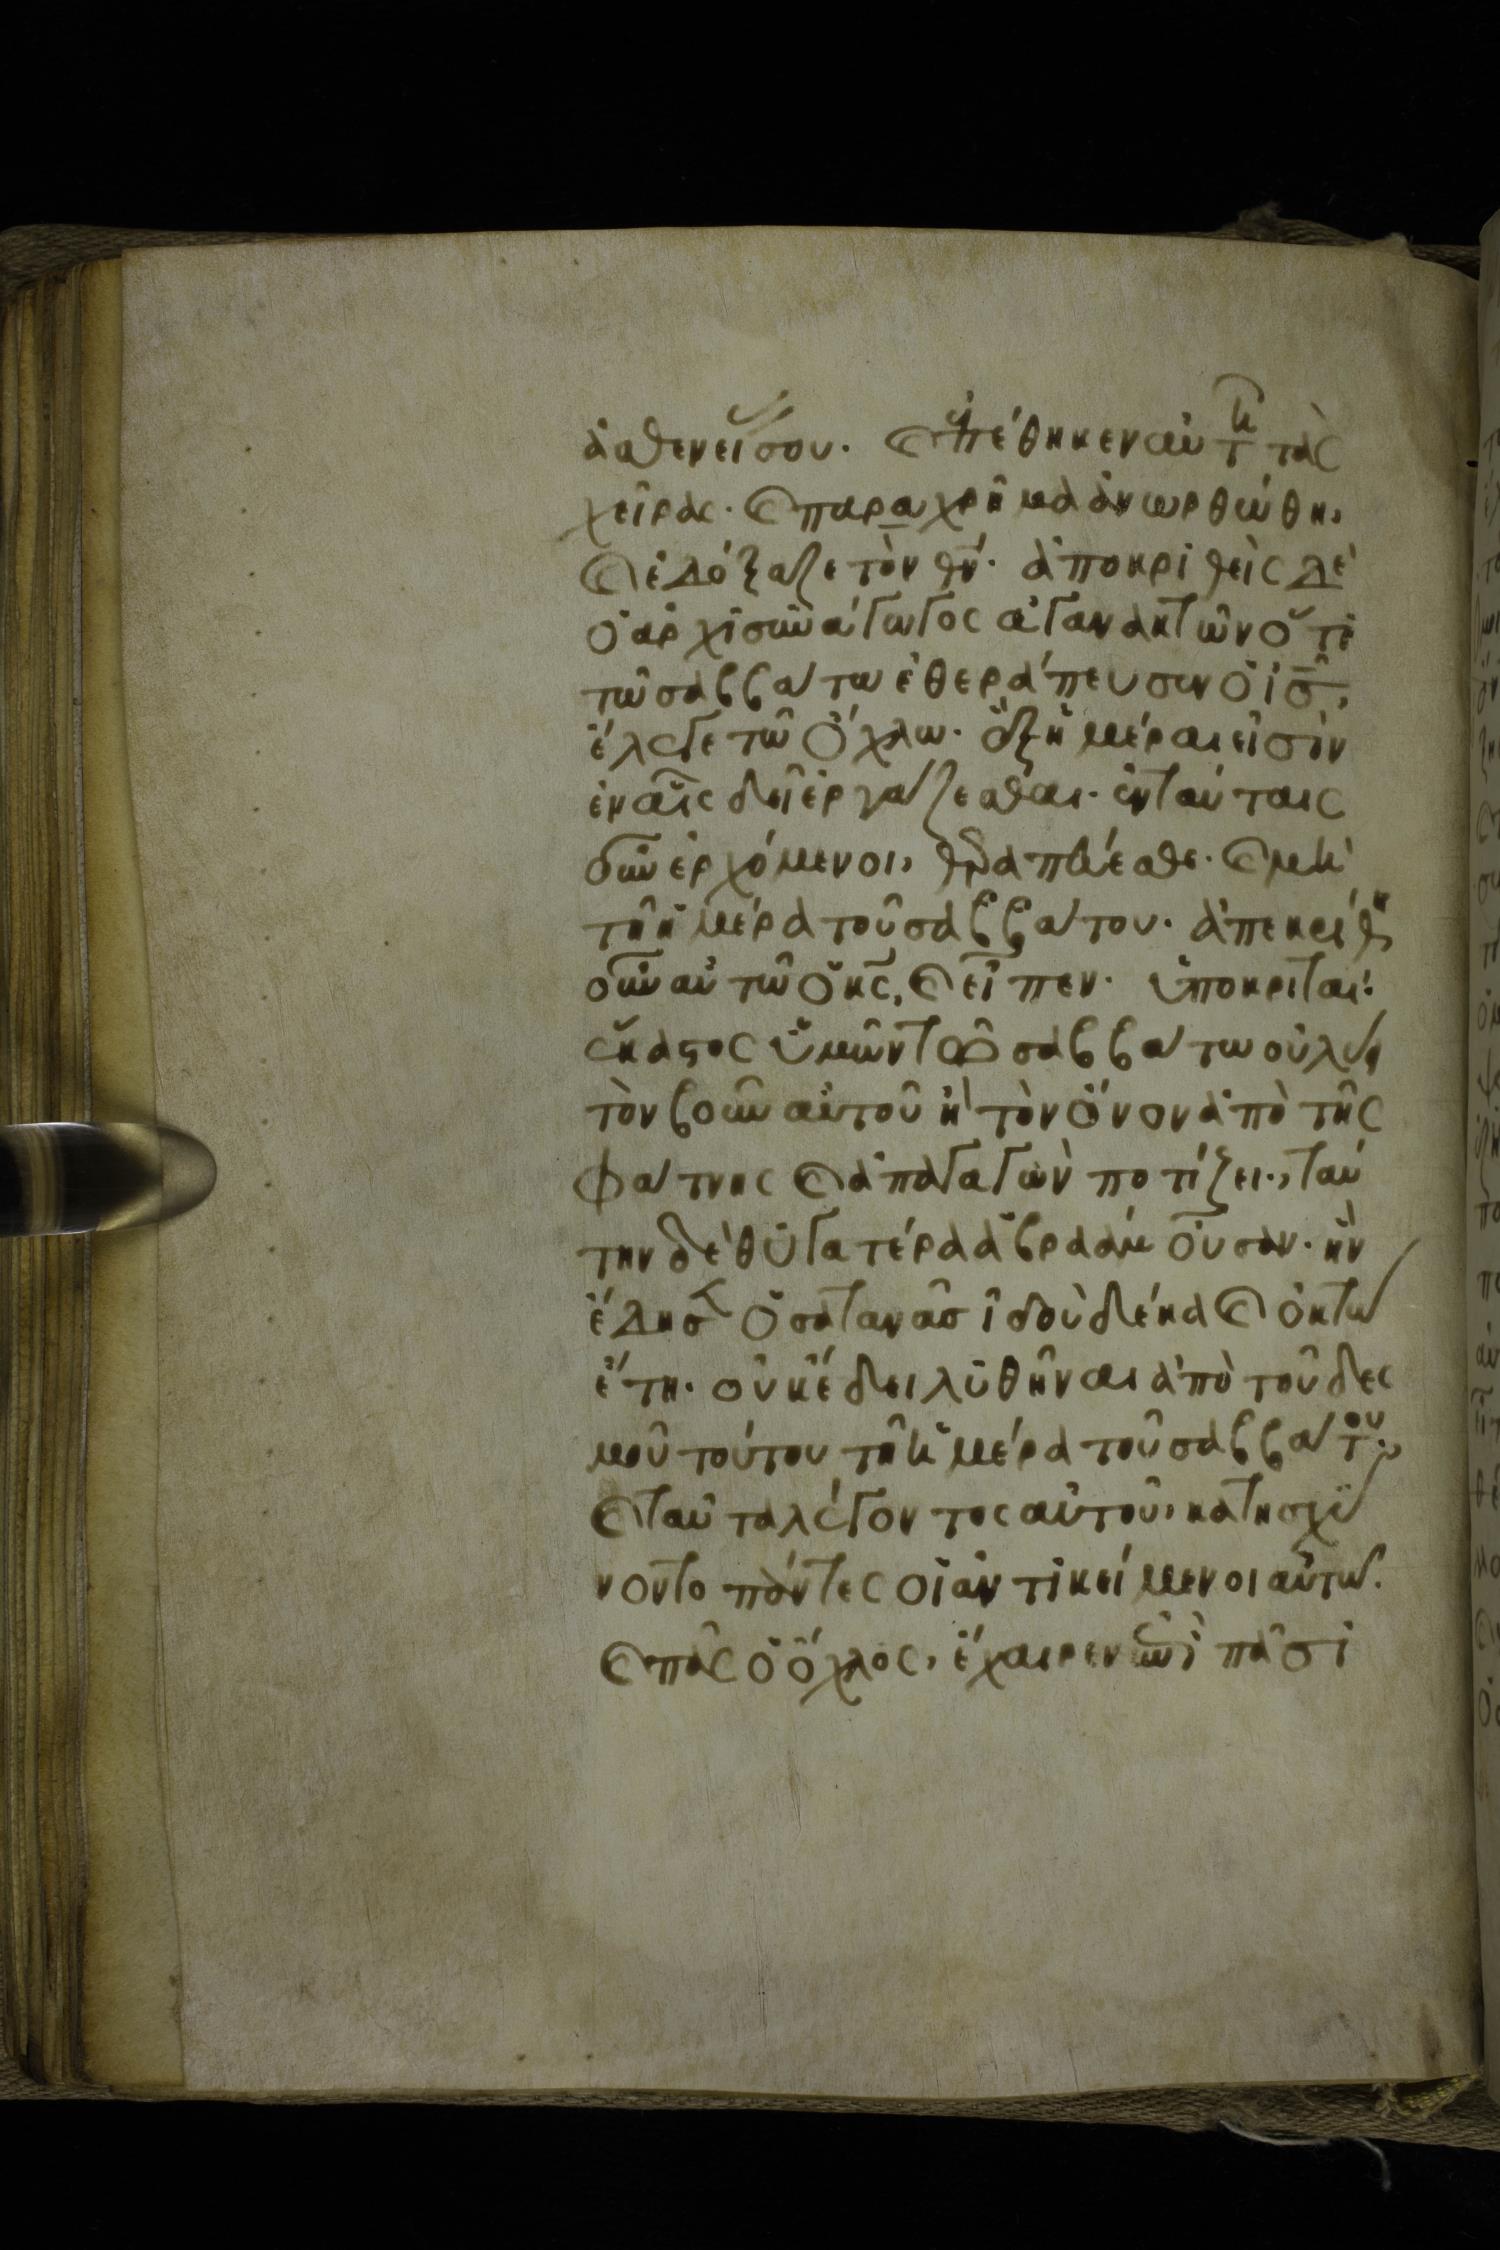 ἀσθενείας σου. καὶ ἐπέθηκεν αὐτῆ τὰς
χεῖρας. καὶ παραχρῆμα ἀνωρθώθη,
καὶ ἐδόξαζε τὸν θν. ἀποκριθεὶς δὲ
ὁ ἀρχισυνάγωγος ἀγανακτῶν ὅτι
τῶ σαββάτω ἐθεράπευσεν ὁ ις,
ἔλεγε τῶ ὄχλω. ἓξ ἡμέραι εἰσὶν
ἐν αἷς δεῖ ἐργάζεσθαι. ἐν ταύταις
οὖν ἐρχόμενοι, θεραπεύεσθε. καὶ μὴ
τῆ ἡμέρα τοῦ σαββάτου. ἀπεκρίθη
οὖν αὐτῶ ὁ κς, καὶ εἶπεν. ὑποκριταί.
ἕκαστος ὑμῶν τῶ σαββάτω οὐ λύει
τὸν βοῦν αὐτοῦ ἢ τὸν ὄνον ἀπὸ τῆς
φάτνης καὶ ἀπαγαγὼν ποτίζει., ταύ
την δὲ θυγατέρα ἀβραὰμ οὖσαν. ἣν
ἔδησεν ὁ σατανᾶσ ἰδοὺ δέκα καὶ ὀκτὼ
ἔτη. οὐκ ἔδει λυθῆναι ἀπὸ τοῦ δεσ
μοῦ τούτου τῆ ἡμέρα τοῦ σαββάτου.,
καὶ ταῦτα λέγοντος αὐτοῦ, κατησχύ
νοντο πάντες οἱ ἀντικείμενοι αὐτῶ.
καὶ πᾶς ὁ ὄχλος, ἔχαιρεν ἐπὶ πᾶσι